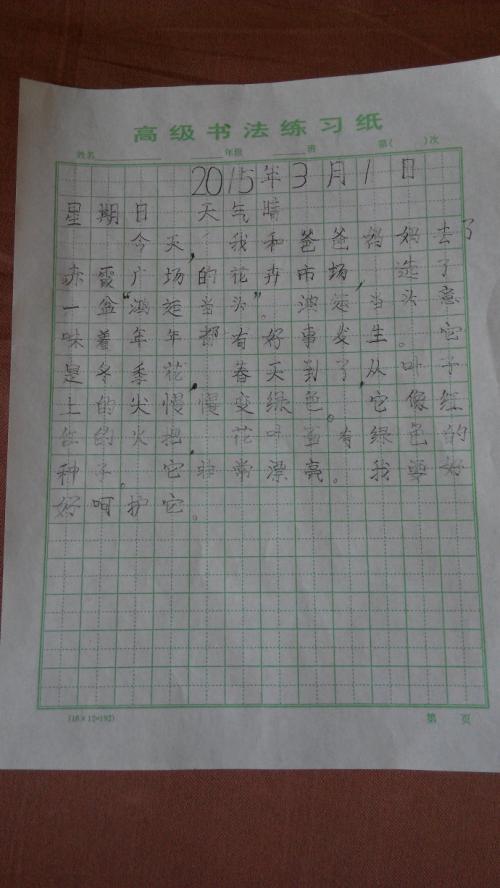 高级书法练习纸
姓名 年级 班 第( )次
2015年3月1日
星期日 天气晴
今天,我和爸爸妈妈去了
赤霞广场的花卉市场,选了
一盆“鸿运当头”。鸿运当头意
味着年年都有好事发生。它
是冬季花,春天到了,从叶子
上的尖慢慢变绿色。它像红
色的火把,花叶面有绿色的
种子。它非常漂亮。我要好
好呵护它。
(16×12=192) 第 页